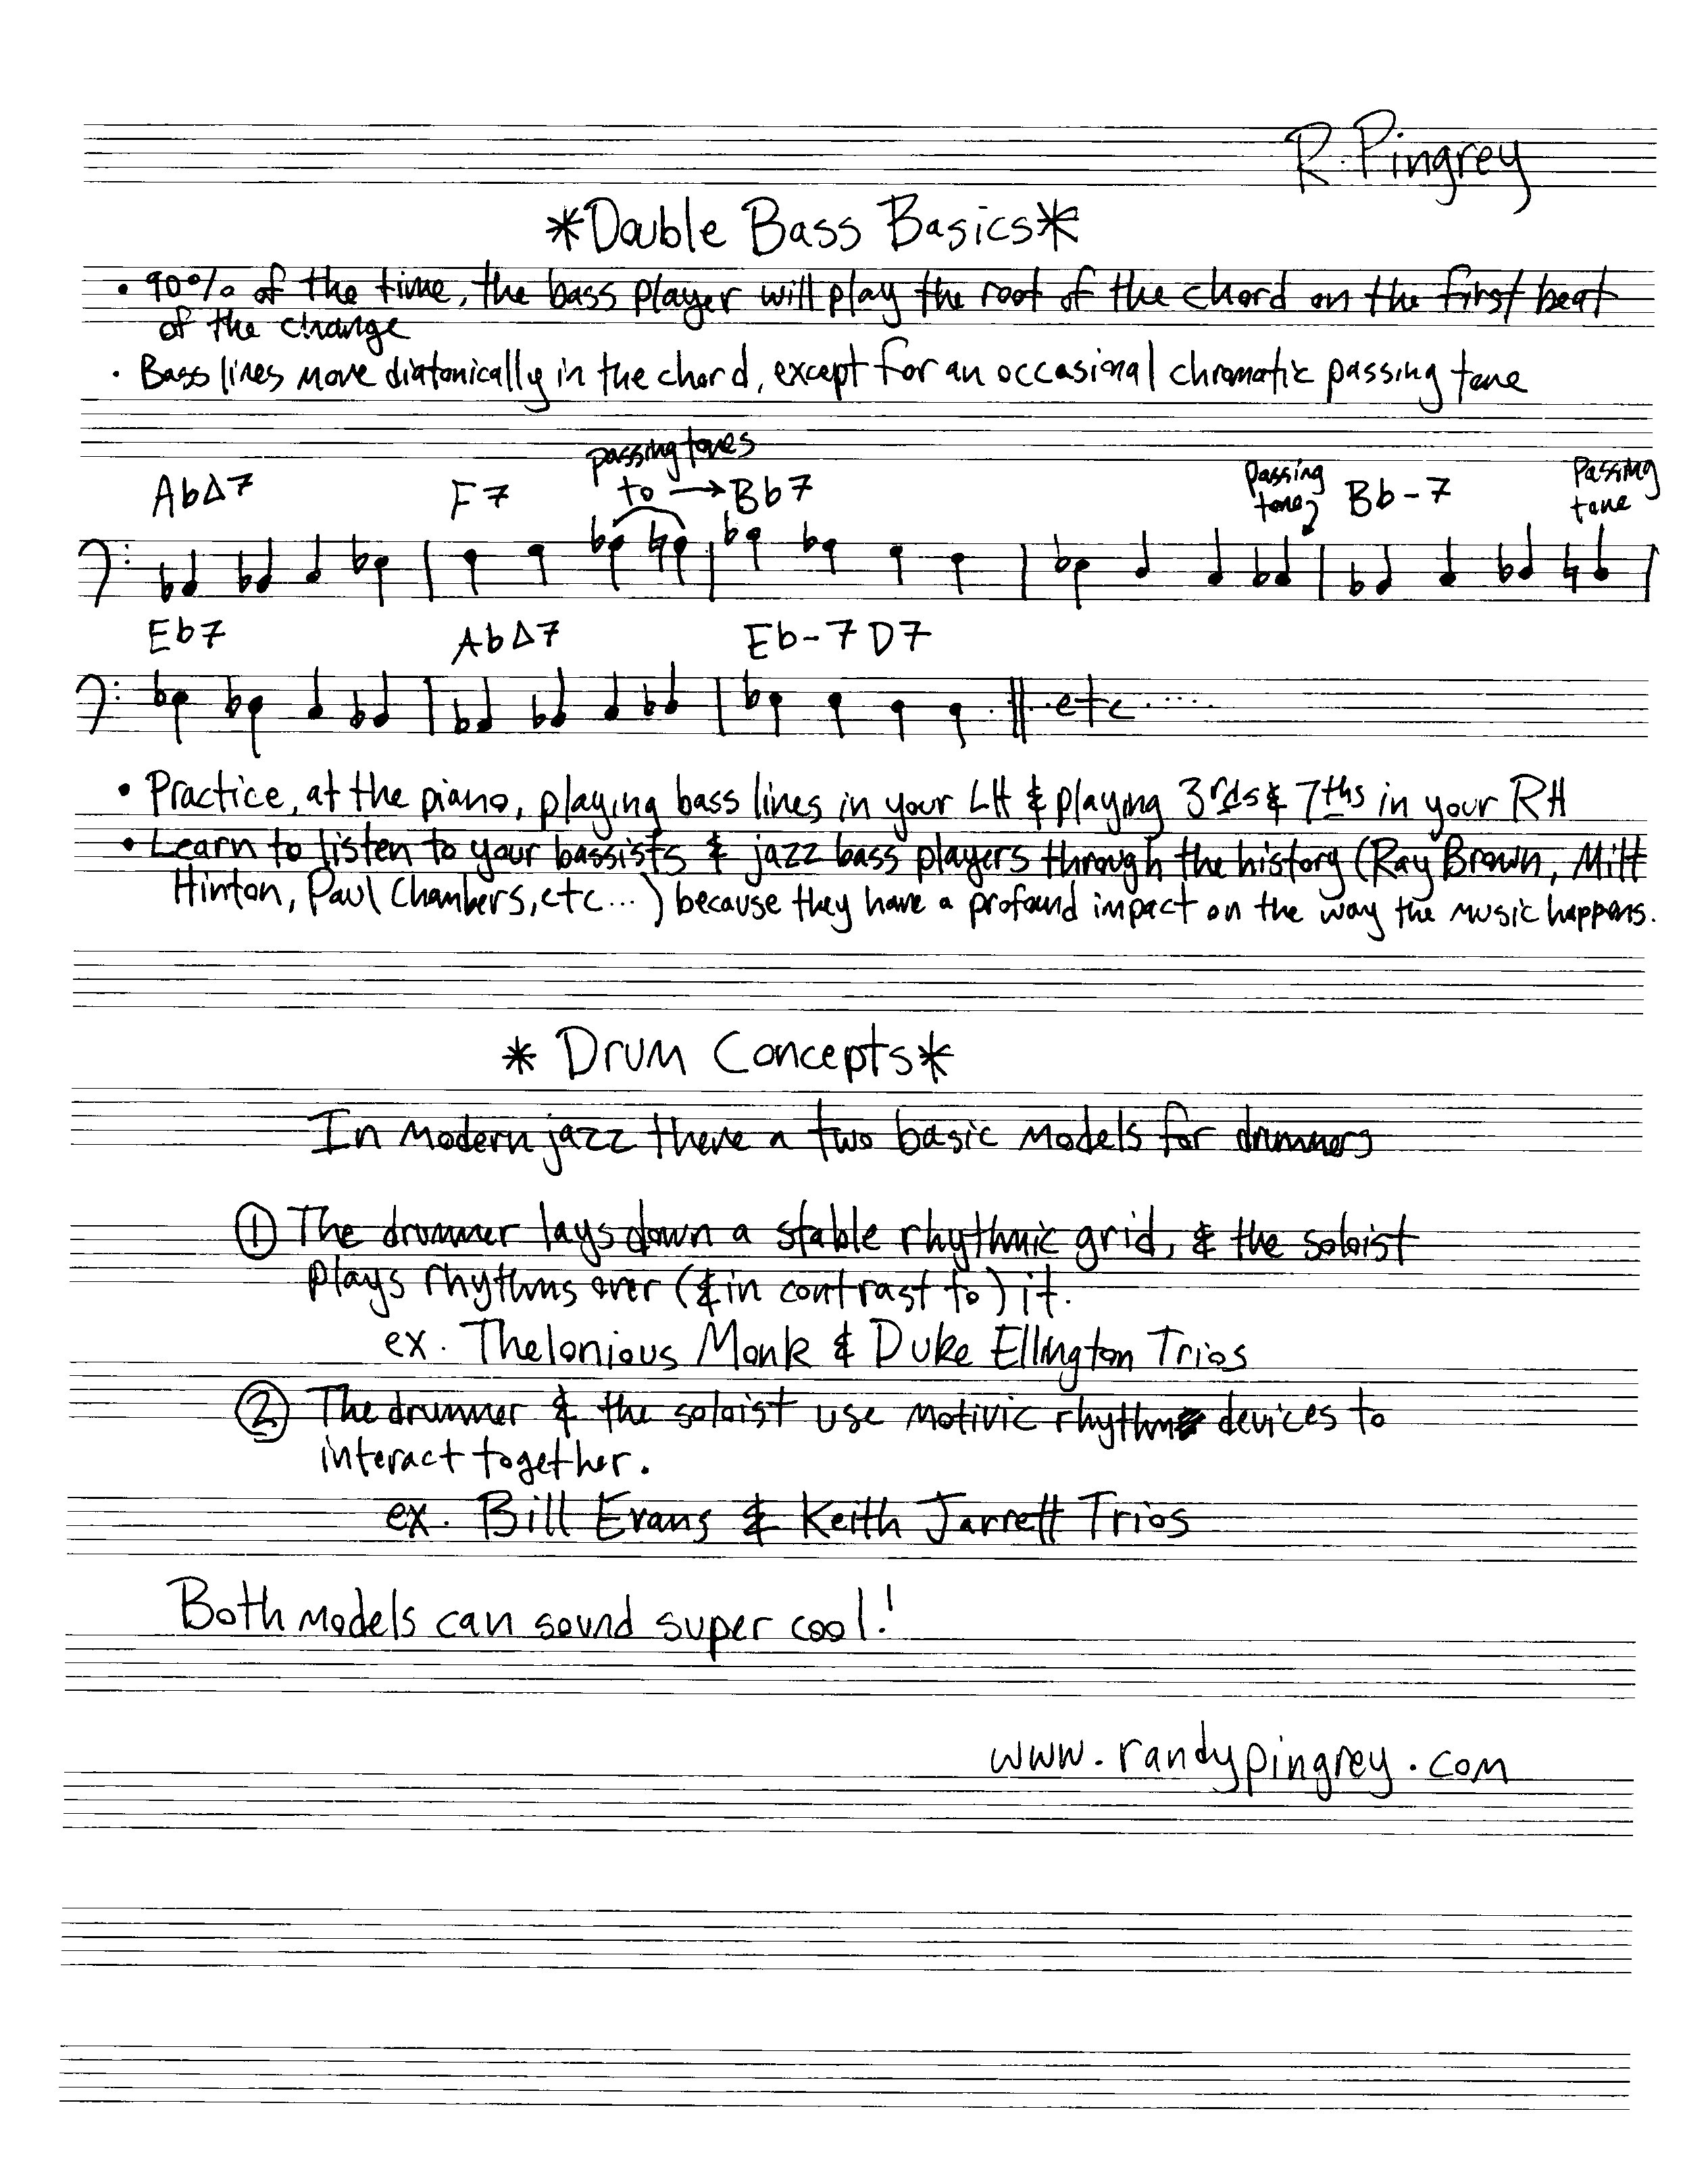 R. Pingrey
*Double Bass Basics*
• 90% of the time, the bass player will play the root of the chord on the first beat
of the change
• Bass lines move diatonically in the chord, except for an occasional chromatic passing tone
passing tones
to → Bb7
AbΔ7 F7 passing tone Bb-7 passing tone
Eb7 AbΔ7 Eb-7 D7
etc.....
• Practice, at the piano, playing bass lines in your LH & playing 3rds & 7ths in your RH
• Learn to listen to your bassists & jazz bass players through the history (Ray Brown, Milt
Hinton, Paul Chambers, etc...) because they have a profound impact on the way the music happens.
* Drum Concepts*
In modern jazz there a two basic models for drummers
① The drummer lays down a stable rhythmic grid, & the soloist
plays rhythms over (& in contrast to) it.
ex. Thelonious Monk & Duke Ellington Trios
② The drummer & the soloist use motivic rhythm devices to
interact together.
ex. Bill Evans & Keith Jarrett Trios
Both models can sound super cool!
www.randypingrey.com